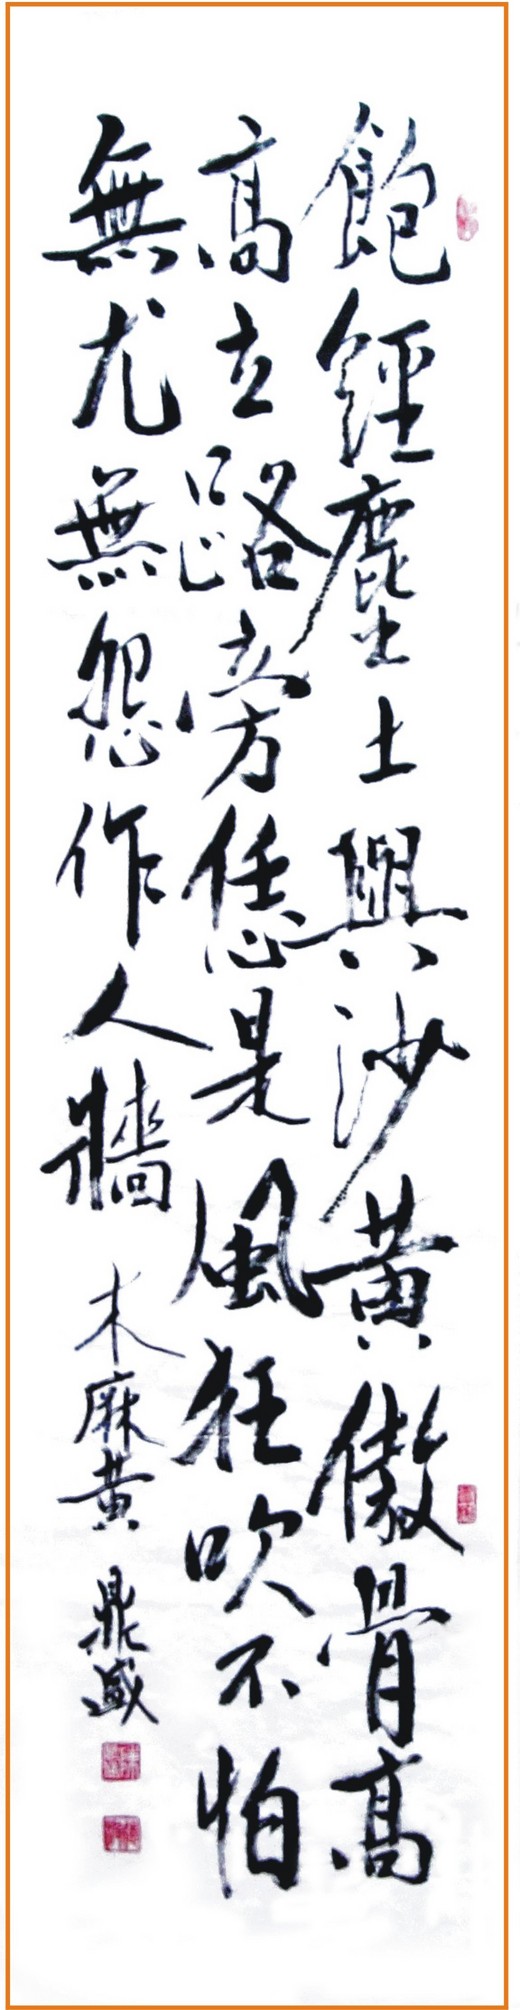 飽經塵土與沙黃傲骨高
高立路旁恁是風狂吹不怕
無尤無怨作人牆 木麻黃 鼎盛